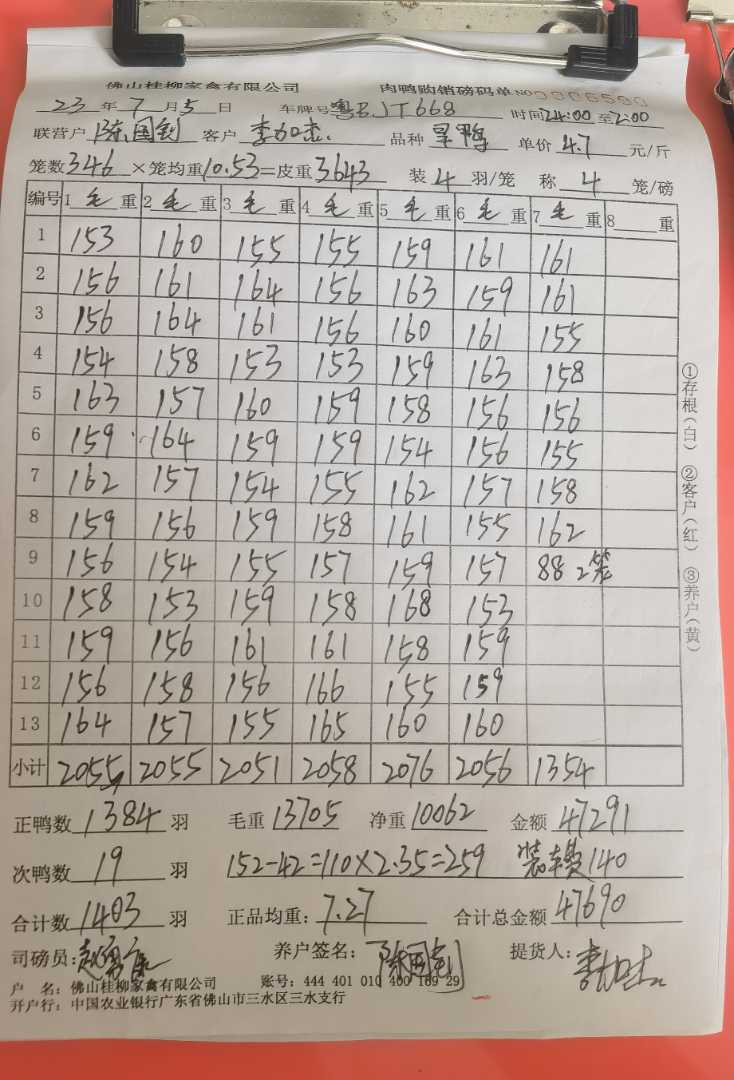 佛山桂柳家禽有限公司 肉鸭购销磅码单 NO
23 年 7 月 5 日 车牌号 粤BJT668 时间 24:00 至 2:00
联营户 陈国钊 客户 李加 品种 旱鸭 单价 4.7 元/斤
笼数 346 ×笼均重 10.53 =皮重 3643 装 4 羽/笼 称 4 笼/磅
编号 1 毛 重 2 毛 重 3 毛 重 4 毛 重 5 毛 重 6 毛 重 7 毛 重 8 重
1 153 160 155 155 159 161 161
2 156 161 164 156 163 159 161
3 156 164 161 156 160 161 155
4 154 158 153 153 159 163 158
5 163 157 160 159 158 156 156
6 159 164 159 159 154 156 155
7 162 157 154 155 162 157 158
8 159 156 159 158 161 155 162
9 156 154 155 157 159 157 88 2笼
10 158 153 159 158 168 153
11 159 156 161 161 158 159
12 156 158 156 166 155 159
13 164 157 155 165 160 160
小计 2055 2055 2051 2058 2076 2056 1354
①存根(白) ②客户(红) ③养户(黄)
正鸭数 1384 羽 毛重 13705 净重 10062 金额 47291
次鸭数 19 羽 152-42=110×2.35=259 装车费140
合计数 1403 羽 正品均重: 7.27 合计总金额 47690
司磅员: 养户签名: 陈国钊 提货人: 李加
户 名: 佛山桂柳家禽有限公司 账号: 444 401 010 400 189 29
开户行: 中国农业银行广东省佛山市三水区三水支行